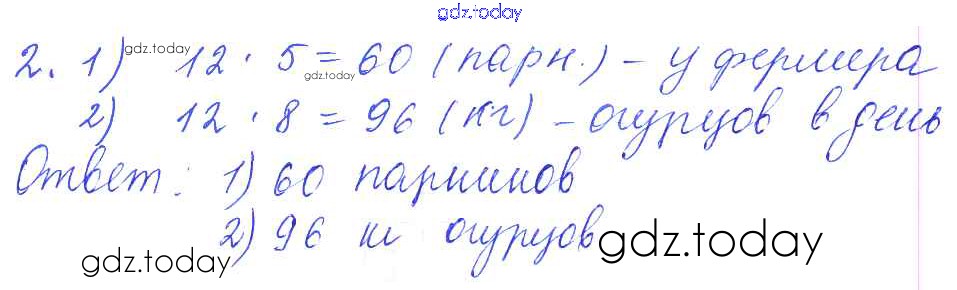 gdz.today
2. 1) gdz.today 12 · 5 = 60 (парн.) – у фермера
gdz.today
2) 12 · 8 = 96 (кг) – огурцов в день
Ответ: 1) 60 парников
2) 96 кг огурцов
gdz.today gdz.today